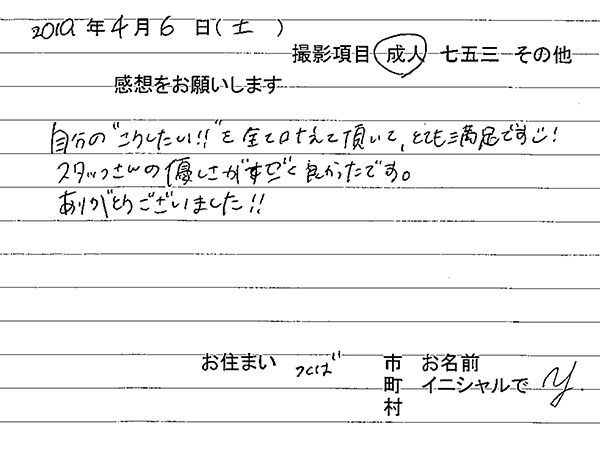 2019年4月6日(土)
撮影項目 成人 七五三 その他
感想をお願いします
自分の"こうしたい!!"を全て叶えて頂いて、とても満足です!
スタッフさんの優しさがすごく良かったです。
ありがとうございました!!
お住まい つくば 市 お名前
町 イニシャルで Y.
村